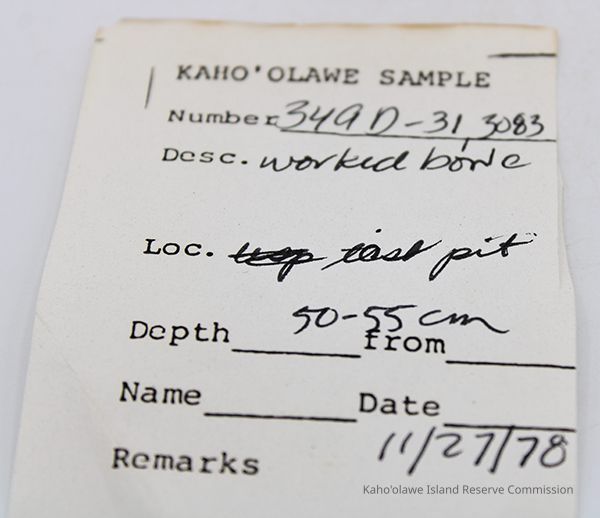 KAHO'OLAWE SAMPLE
Number 349D-31, 3083
Desc. worked bone
Loc. test pit
Depth 50-55 cm from
Name Date
Remarks 11/27/78
Kaho'olawe Island Reserve Commission